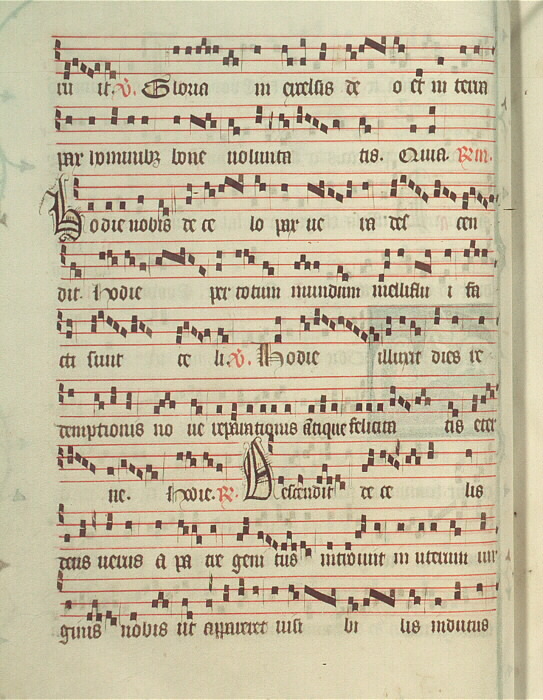 ru it. V. Gloria in excelsis de o et in terra
pax hominibz bone volunta tis. Quia.
Hodie nobis de ce lo pax ue ra des cen
dit. Hodie per totum mundum melliflu i fa
cti sunt ce li. V. Hodie illuxit dies re
demptionis no ue reparationis ātique felicita tis eter
ne. Hodie. R. Descendit de ce lis
deus uerus a pa tre geni tus introiuit in uterum uir
ginis nobis ut appareret uisi bi lis indutus